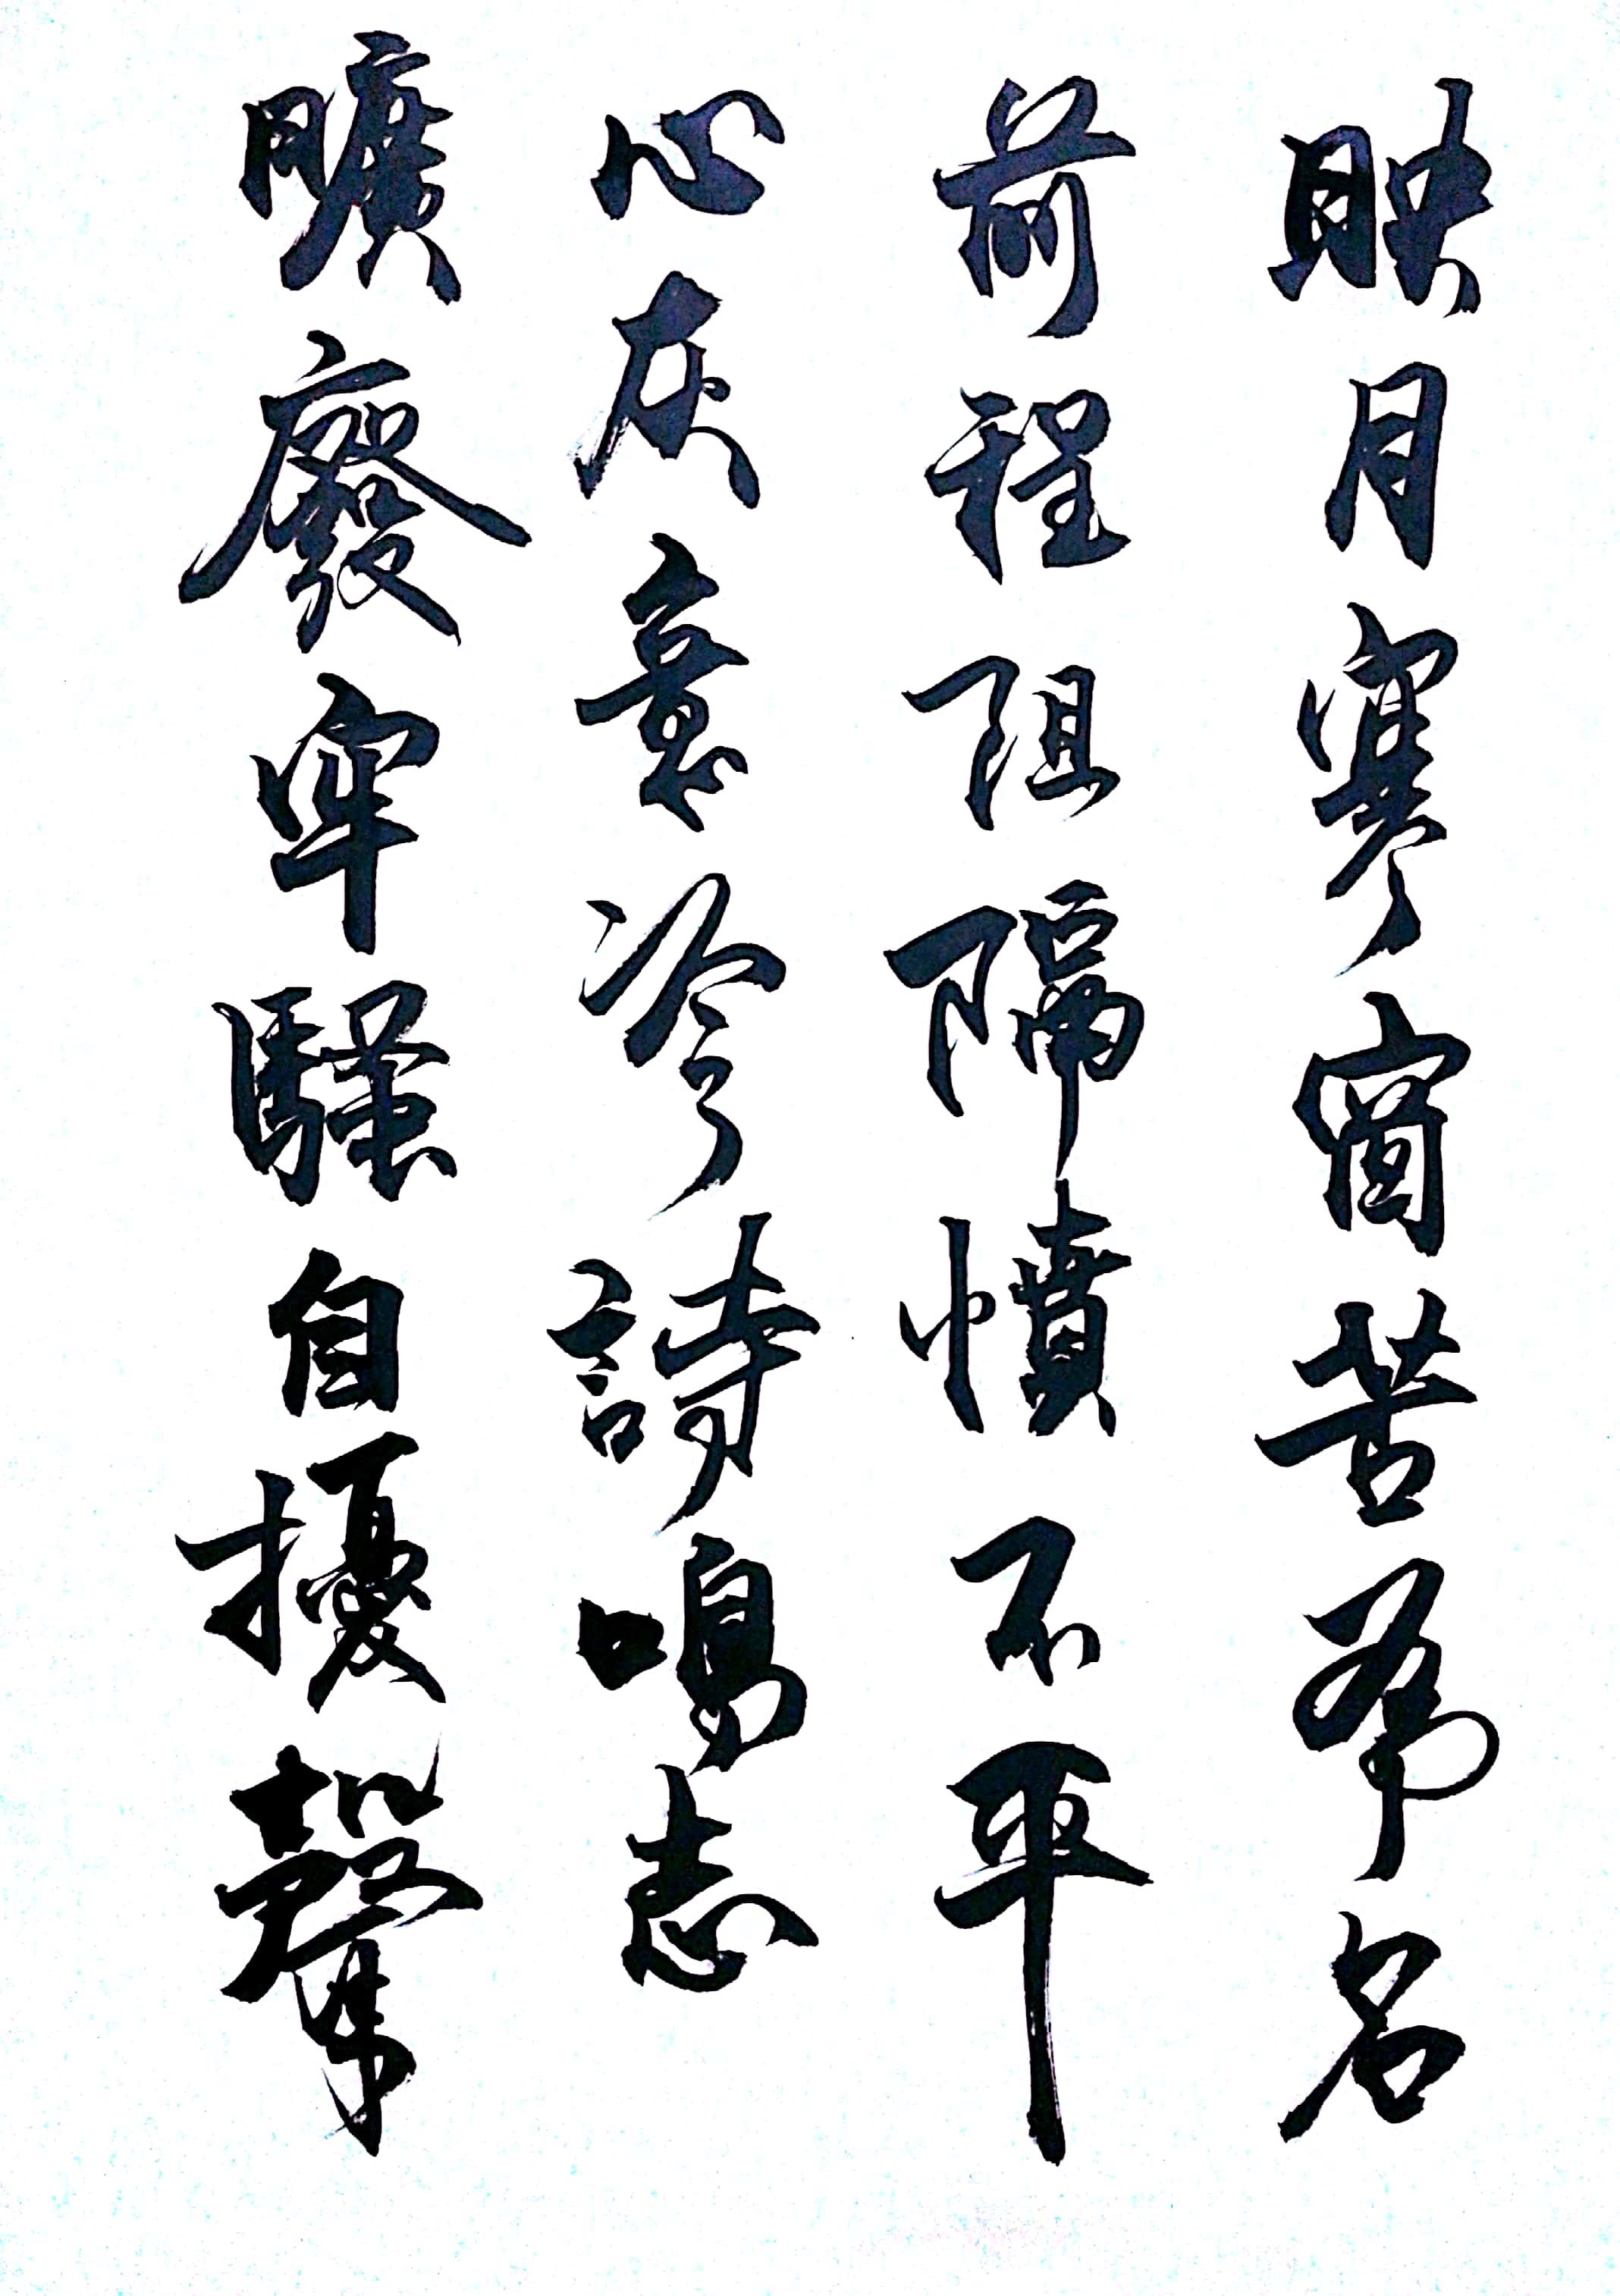 映月寒窗苦希名
前程阻隔憤不平
心灰意冷詩鳴志
曠廢牢騷自擾聲